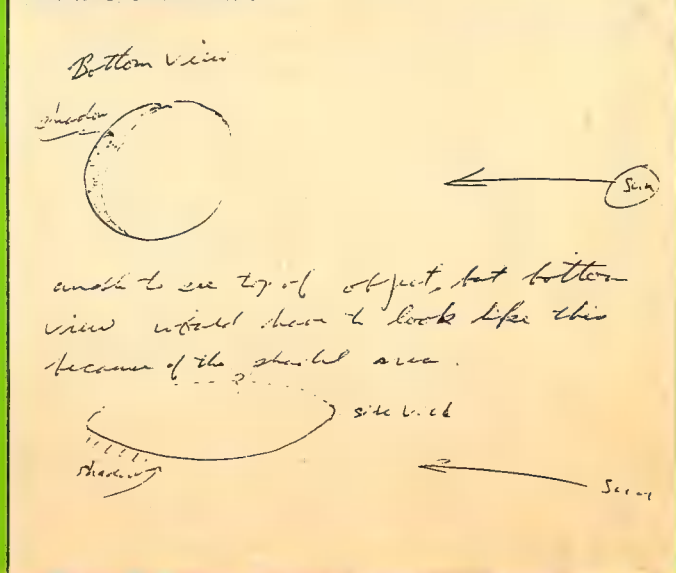 Bottom View
shadow
Sun
unable to see top of object, but bottom
view would have to look like this
because of the shaded area.
?
side view
shadow
Sun